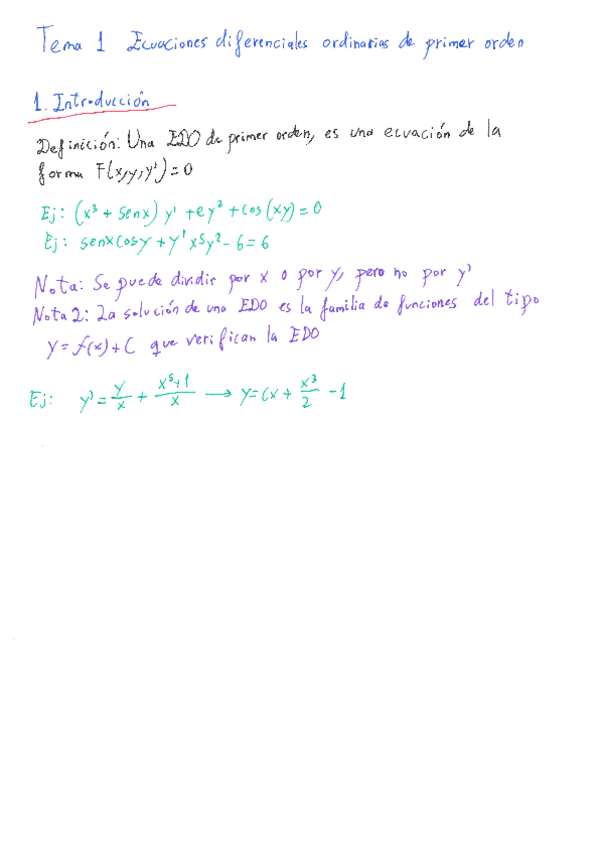 Tema 1 Ecuaciones diferenciales ordinarias de primer orden
1. Introducción
Definición: Una EDO de primer orden, es una ecuación de la
forma F(x,y,y')=0
Ej: (x³ + senx) y' + ey² + cos(xy)=0
Ej: senxcosy + y' x⁵y² - 6 = 6
Nota: Se puede dividir por x o por y, pero no por y'
Nota 2: La solución de una EDO es la familia de funciones del tipo
y = f(x) + C que verifican la EDO
Ej: y' = y/x + x⁵+1/x → y = Cx + x³/2 - 1